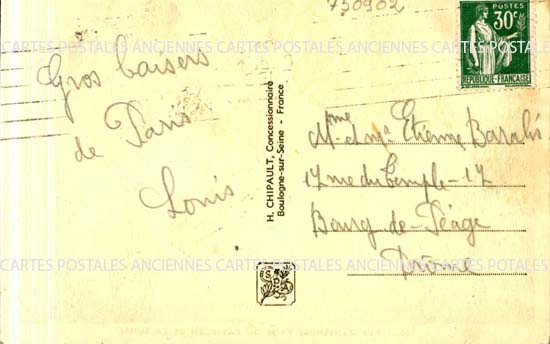 730902
POSTES
30c
REPUBLIQUE-FRANÇAISE
CARTES POSTALES ANCIENNES CARTES POSTALES ANCIENNES CARTES POSTALES
Gros baisers
de Paris
Louis
H. CHIPAULT, Concessionnaire
Boulogne-sur-Seine - France
Etienne
12 rue du Temple-12
Bourg-de-Péage
Drôme
CARTES POSTALES ANCIENNES CARTES POSTALES ANCIENNES CARTES POSTALES